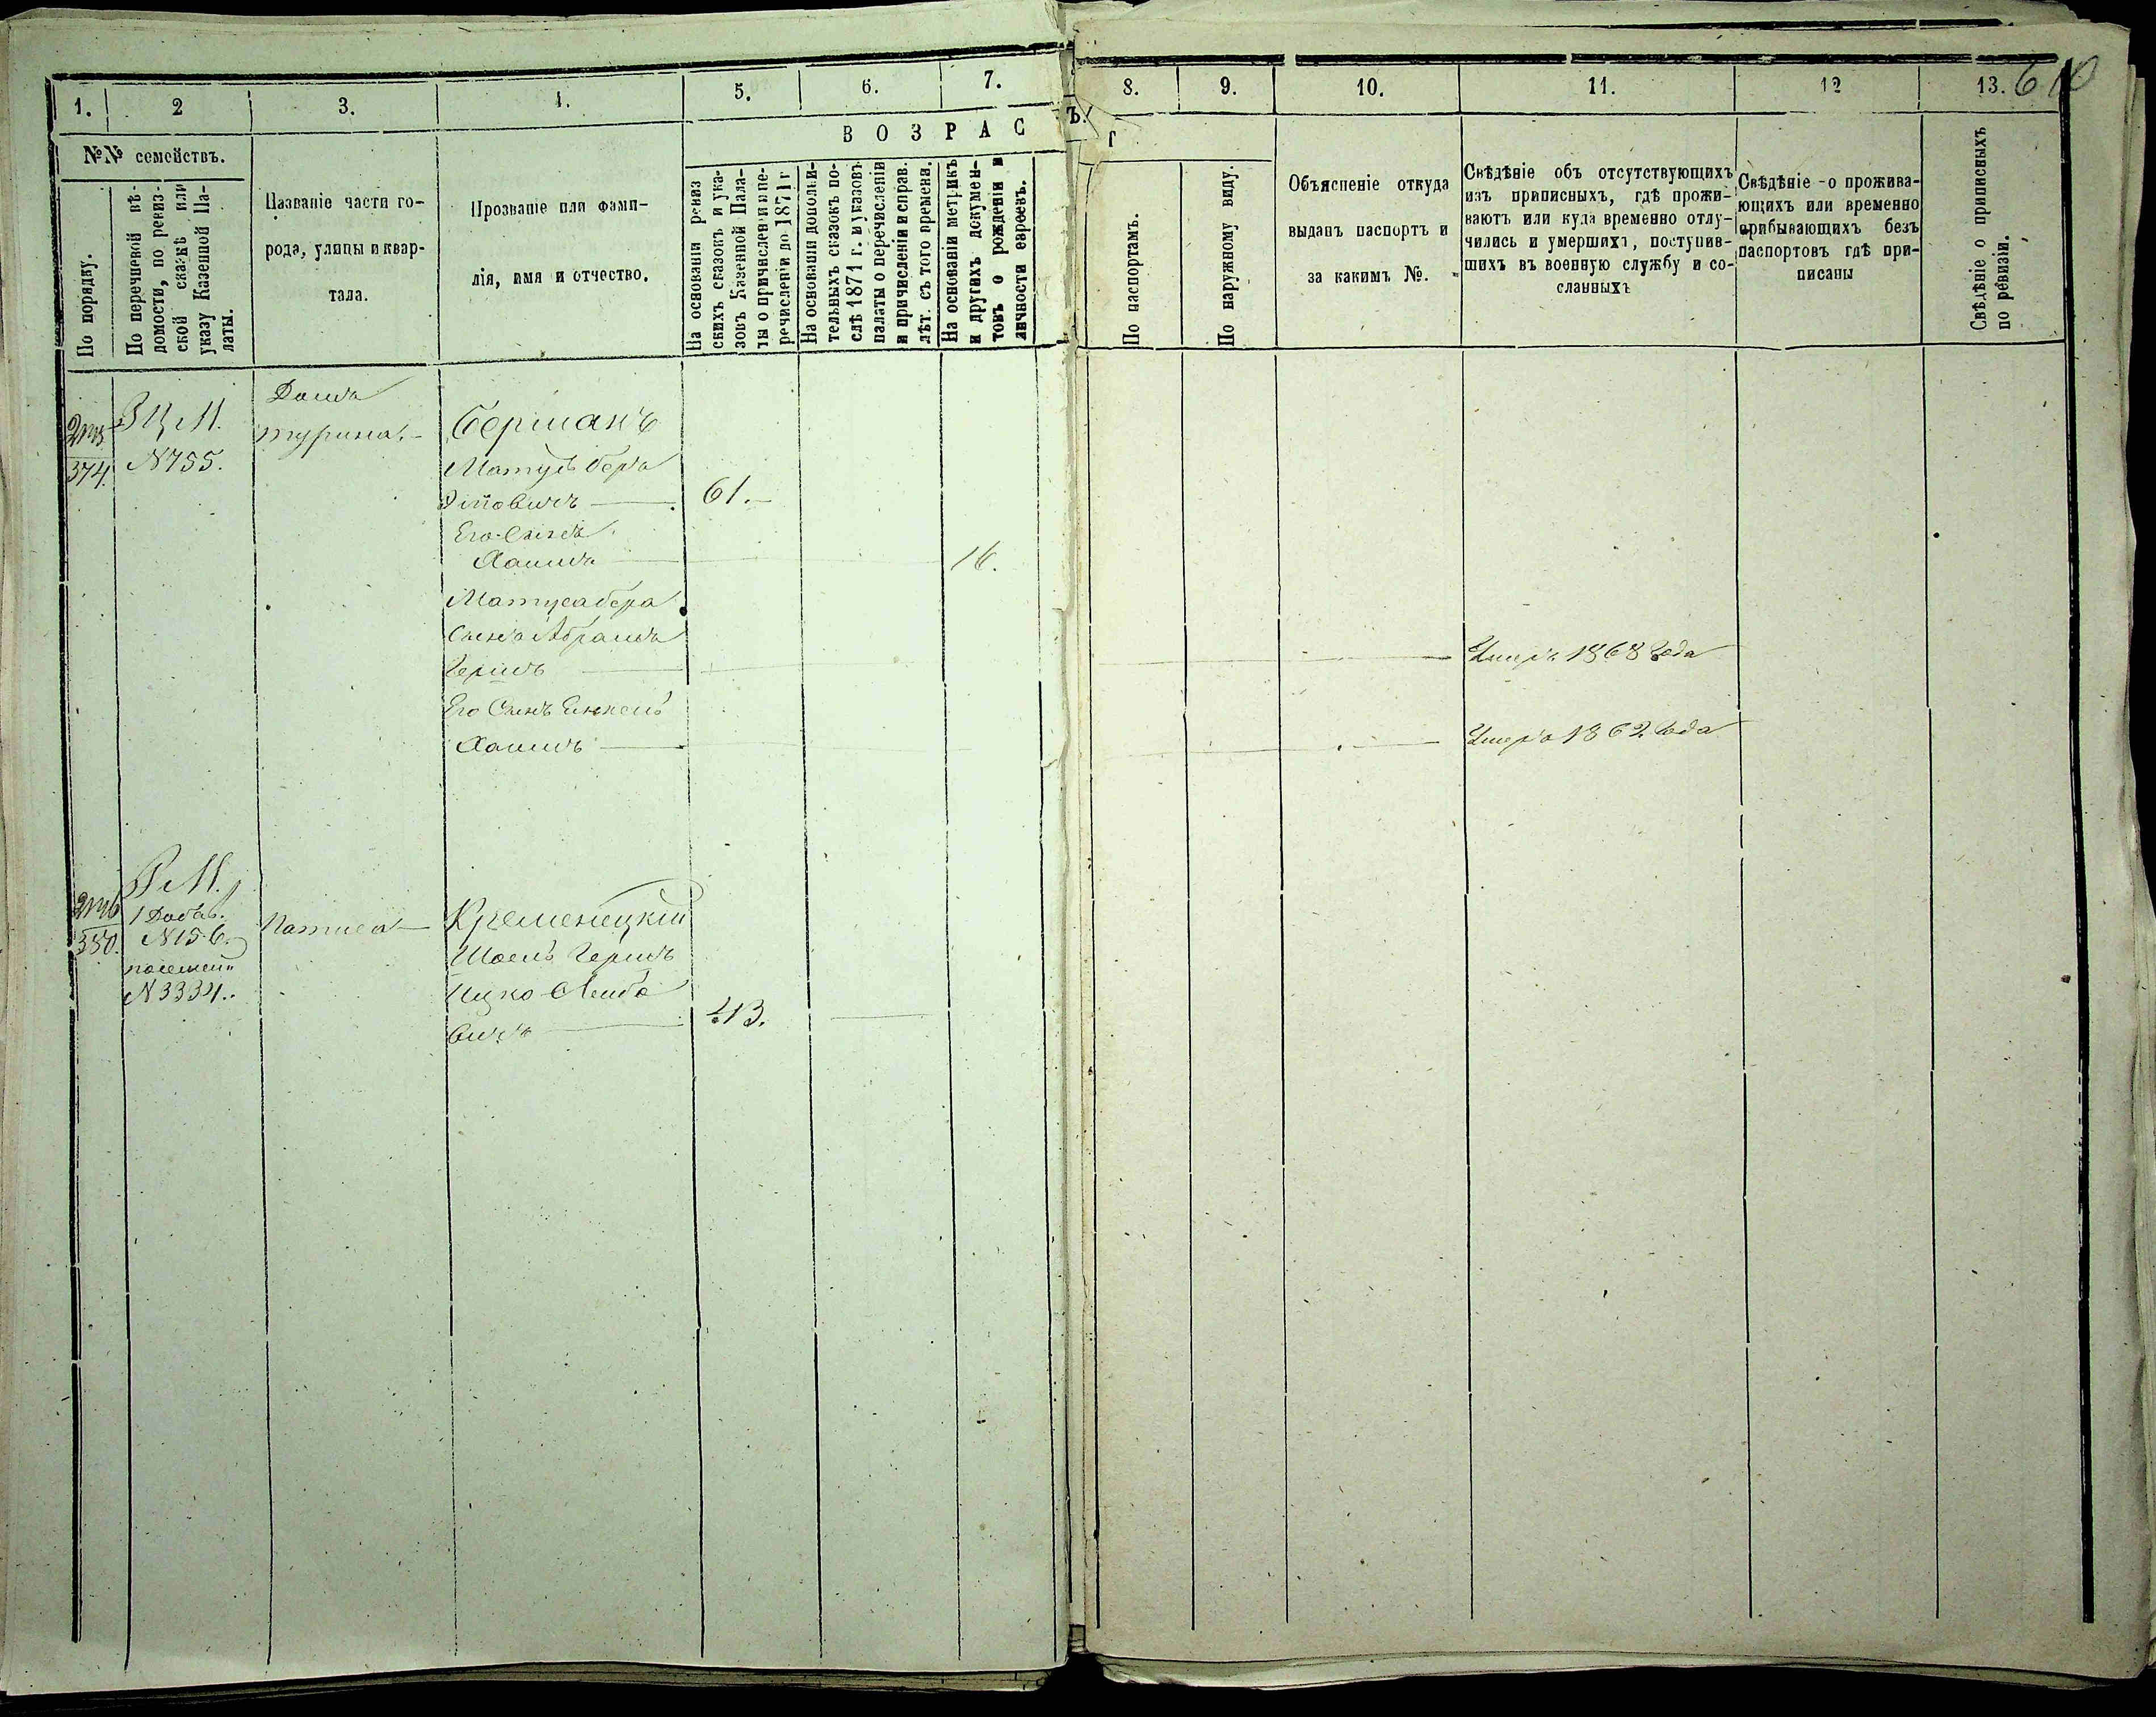 1.
2
3.
4.
5.
6.
7.
8.
9.
10.
11.
12
13.
610
№№ семействъ.
По порядку.
По перечневой вѣ-
домости, по ревиз-
ской сказкѣ или
указу Казенной Па-
латы.
Названіе части го-
рода, улицы и квар-
тала.
Прозваніе или фами-
лія, имя и отчество.
ВОЗРАС
Ъ.
Т
На основаніи ревиз
скихъ сказокъ и ука-
зовъ Казенной Пала-
ты о причисленіи и пе-
речисленіи до 1871 г
На основаніи дополни-
тельныхъ сказокъ по-
слѣ 1871 г. и указовъ
палаты о перечисленіи
и причисленіи и справ.
лѣт. съ того времени.
На основаніи метрикъ
и другихъ докумен-
товъ о рожденіи и
личности евреевъ.
По паспортамъ.
По наружному виду.
Объясненіе откуда
выданъ паспортъ и
за какимъ №.
Свѣдѣніе объ отсутствующихъ
изъ приписныхъ, гдѣ прожи-
ваютъ или куда временно отлу-
чились и умершихъ, поступив-
шихъ въ военную службу и со-
сланныхъ
Свѣдѣніе - о прожива-
ющихъ или временно
прибывающихъ безъ
паспортовъ гдѣ при-
писаны
Свѣдѣніе о приписныхъ
по ревизіи.
374.
N 755.
Домъ
турина.
Берманъ
Матусъ Беръ
61.
Его Сынъ
Хаимъ
16.
Матуса Бера
Сынъ Абрамъ
Гершъ
Умеръ 1868 года
Его Сынъ Янкель
Хаимъ
Умеръ 1862 года
Р М.
350.
1 Добав.
N 156.
N 3334.
Кременецкій
Шоель Гершъ
Ицко-Лейбо
вичъ
43.